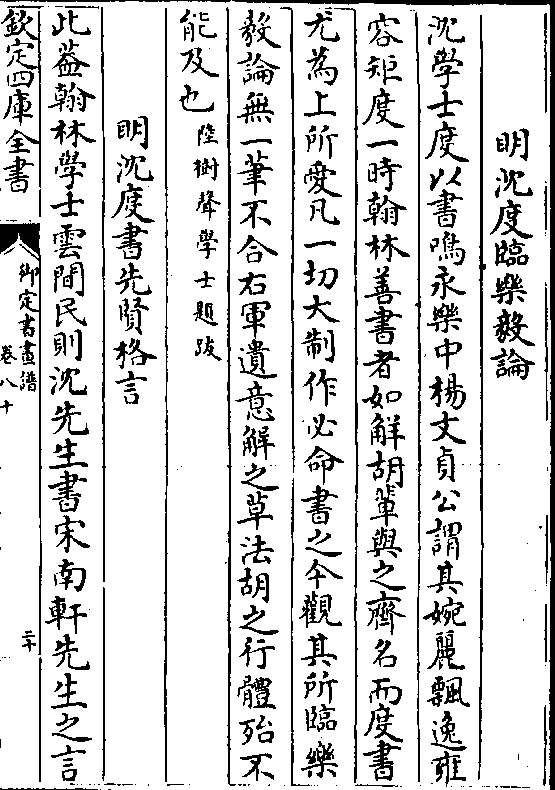 明沈度臨樂毅論
沈學士度以書鳴永樂中楊文貞公謂其婉麗飄逸雍
容矩度一時翰林善書者如解胡輩與之齊名而度書
尤為上所愛凡一切大制作必命書之今觀其所臨樂
毅論無一筆不合右軍遺意解之草法胡之行體殆不
能及也陸樹聲學士題跋
明沈度書先賢格言
此葢翰林學士雲間民則沈先生書宋南軒先生之言
欽定四庫全書
御定書畫譜
卷八十
二十